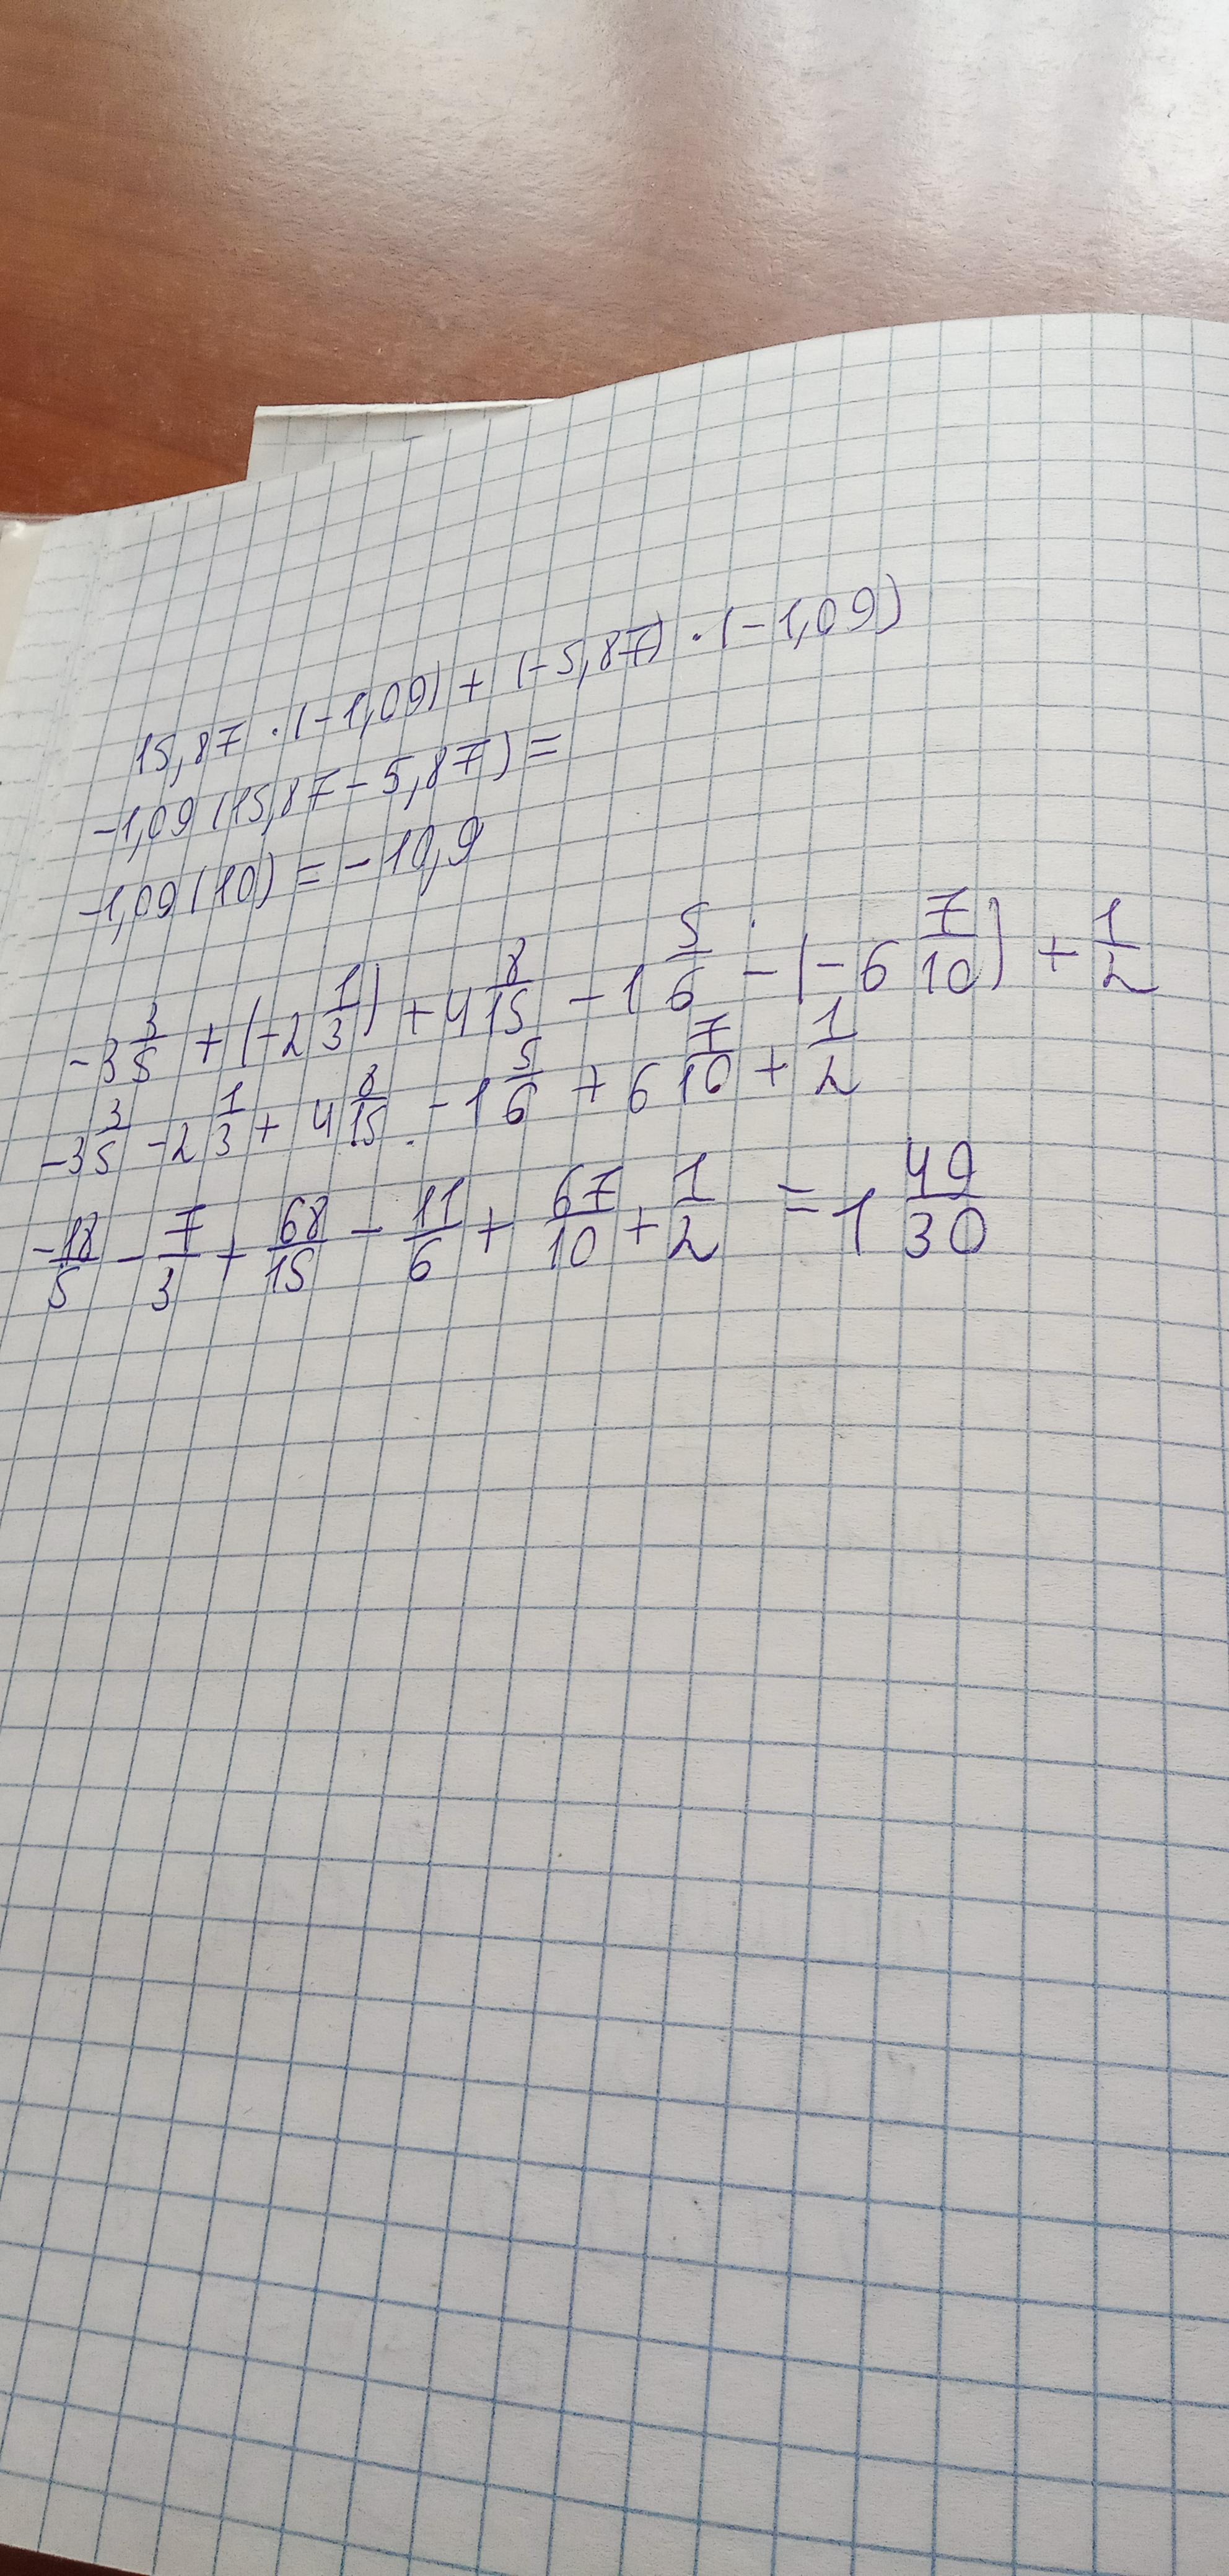 15,87 · (-1,09) + (-5,87) · (-1,09)
-1,09 (15,87 - 5,87) =
-1,09 (10) = -10,9
-3 3/5 + (-2 1/3) + 4 8/15 - 1 5/6 - (-6 7/10) + 1/2
-3 3/5 - 2 1/3 + 4 8/15 - 1 5/6 + 6 7/10 + 1/2
-18/5 - 7/3 + 68/15 - 11/6 + 67/10 + 1/2 = 1 49/30